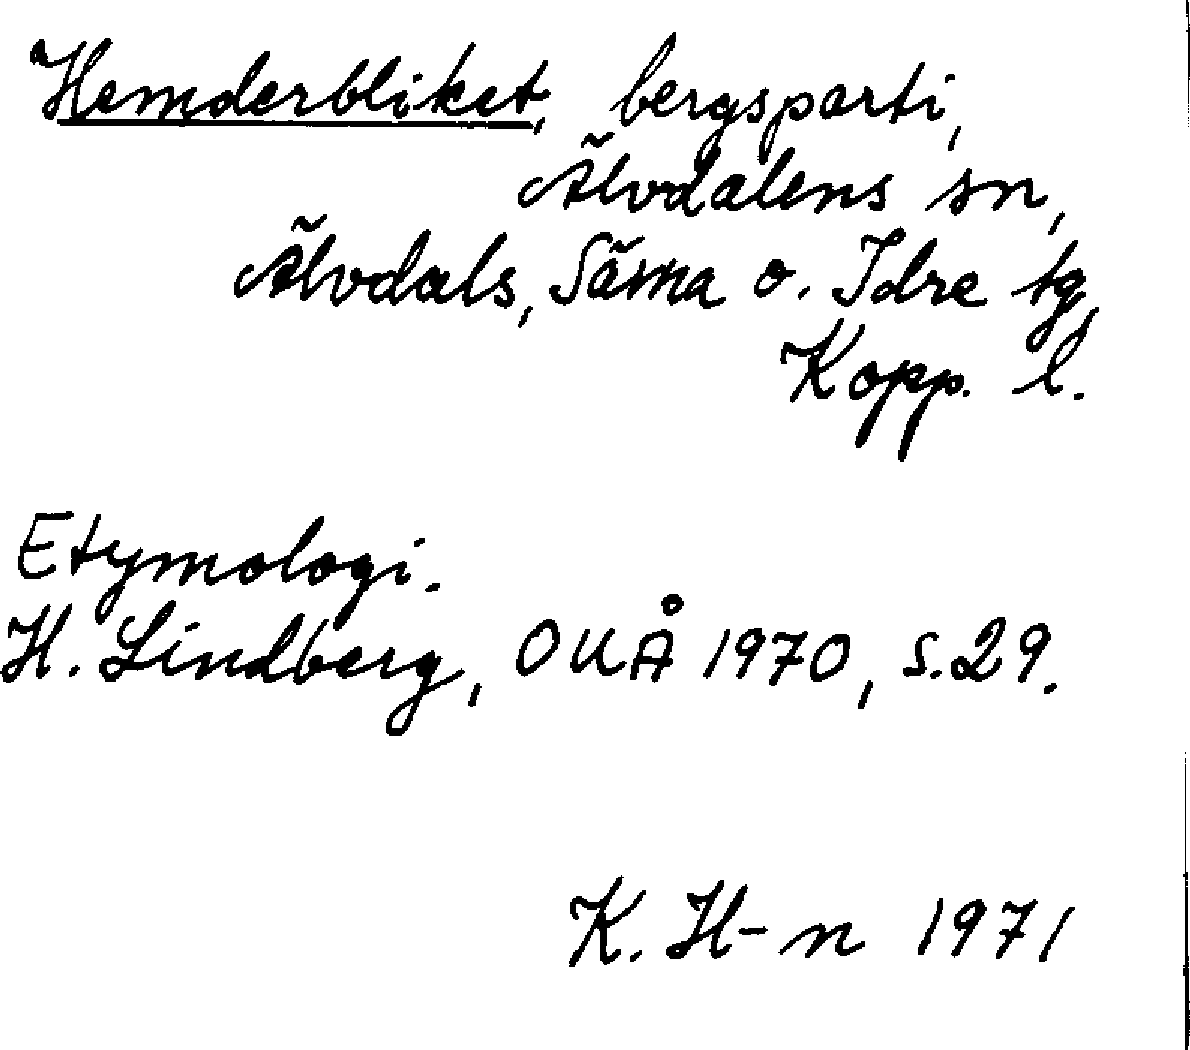 Hemderbliket, bergsparti,
Älvdalens sn,
Älvdals, Särna o. Idre tg,
Kopp. l.
Etymologi.
H. Lindberg, OUÅ 1970, s. 29.
K. H-n 1971